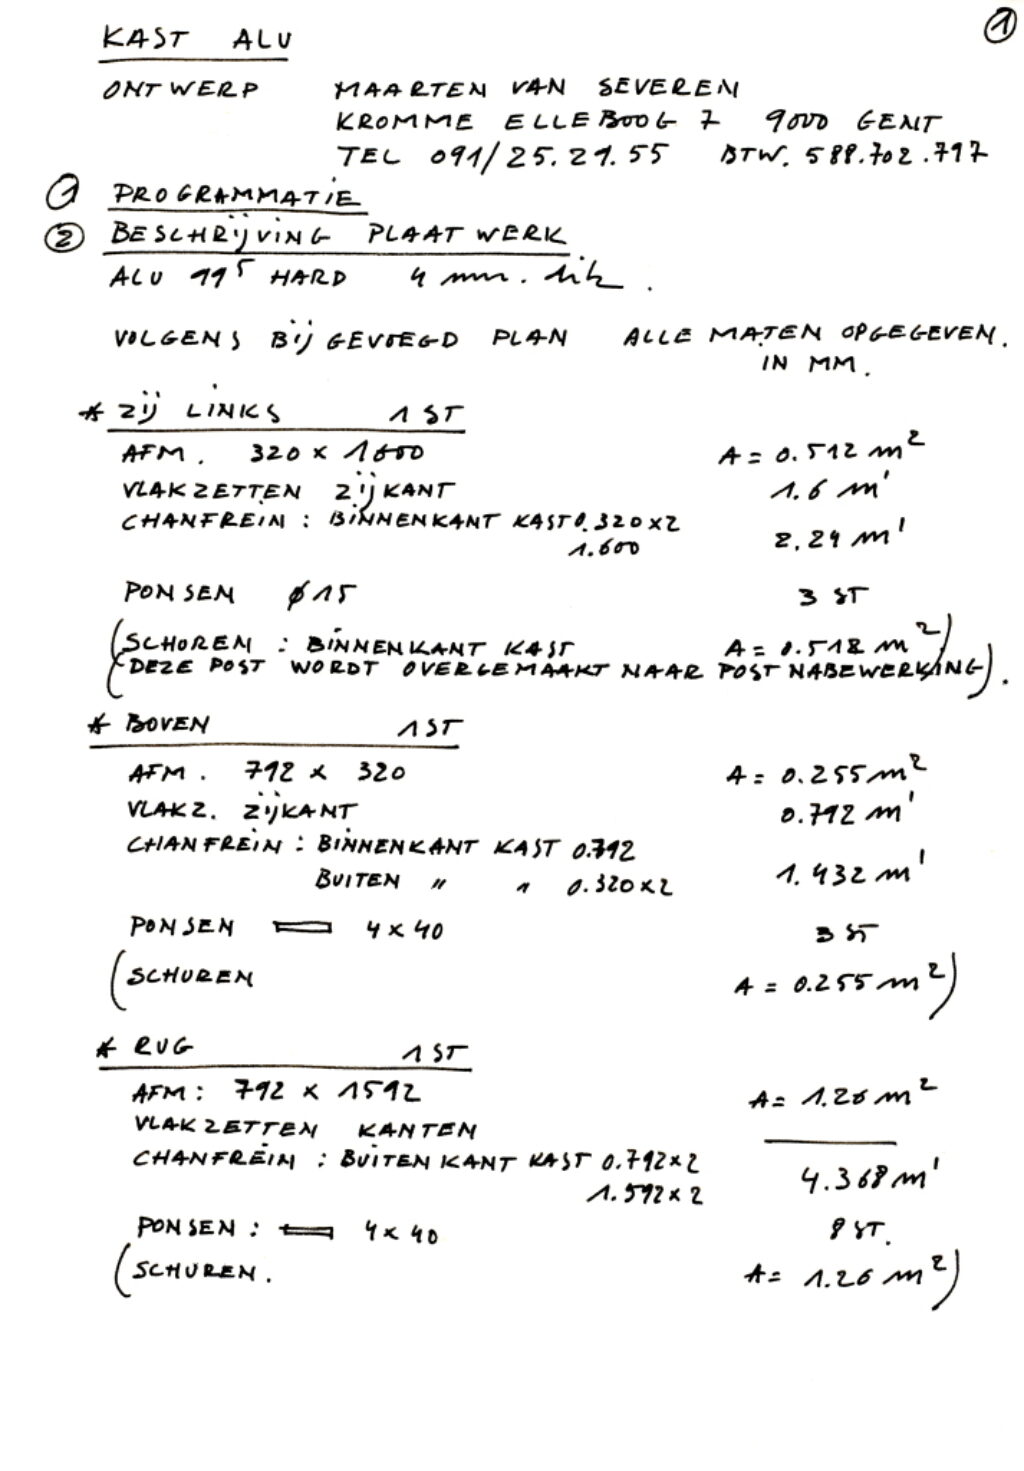 1
KAST ALU
ONTWERP MAARTEN VAN SEVEREN
KROMME ELLEBOOG 7 9000 GENT
TEL 091/25.21.55 BTW. 588.702.797
1 PROGRAMMATIE
2 BESCHRIJVING PLAATWERK
ALU 99⁵ HARD 4 mm. dik.
VOLGENS BIJGEVOEGD PLAN ALLE MATEN OPGEGEVEN.
IN MM.
* ZIJ LINKS 1 ST
AFM. 320 x 1600 A = 0.512 m²
VLAKZETTEN ZIJKANT 1.6 m'
CHANFREIN : BINNENKANT KAST 0.320x2
1.600 2.24 m'
PONSEN ø15 3 ST
(SCHOREN : BINNENKANT KAST A = 0.512 m²)
(DEZE POST WORDT OVERGEMAAKT NAAR POST NABEWERKING).
* BOVEN 1 ST
AFM. 792 x 320 A = 0.255 m²
VLAKZ. ZIJKANT 0.792 m'
CHANFREIN : BINNENKANT KAST 0.792
BUITEN " " 0.320x2 1.432 m'
PONSEN 4 x 40 3 ST
(SCHUREN A = 0.255 m²)
* RUG 1 ST
AFM : 792 x 1592 A = 1.26 m²
VLAKZETTEN KANTEN
CHANFREIN : BUITENKANT KAST 0.792x2
1.592x2 4.368 m'
PONSEN : 4 x 40 8 ST.
(SCHUREN. A = 1.26 m²)